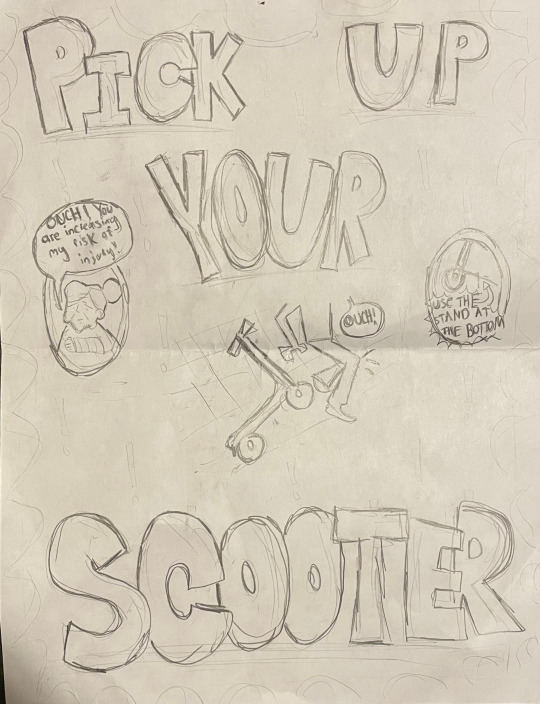 PICK UP
YOUR
OUCH! You
are increasing
my risk of
injury!
OUCH!
USE THE
STAND AT
THE BOTTOM
SCOOTER